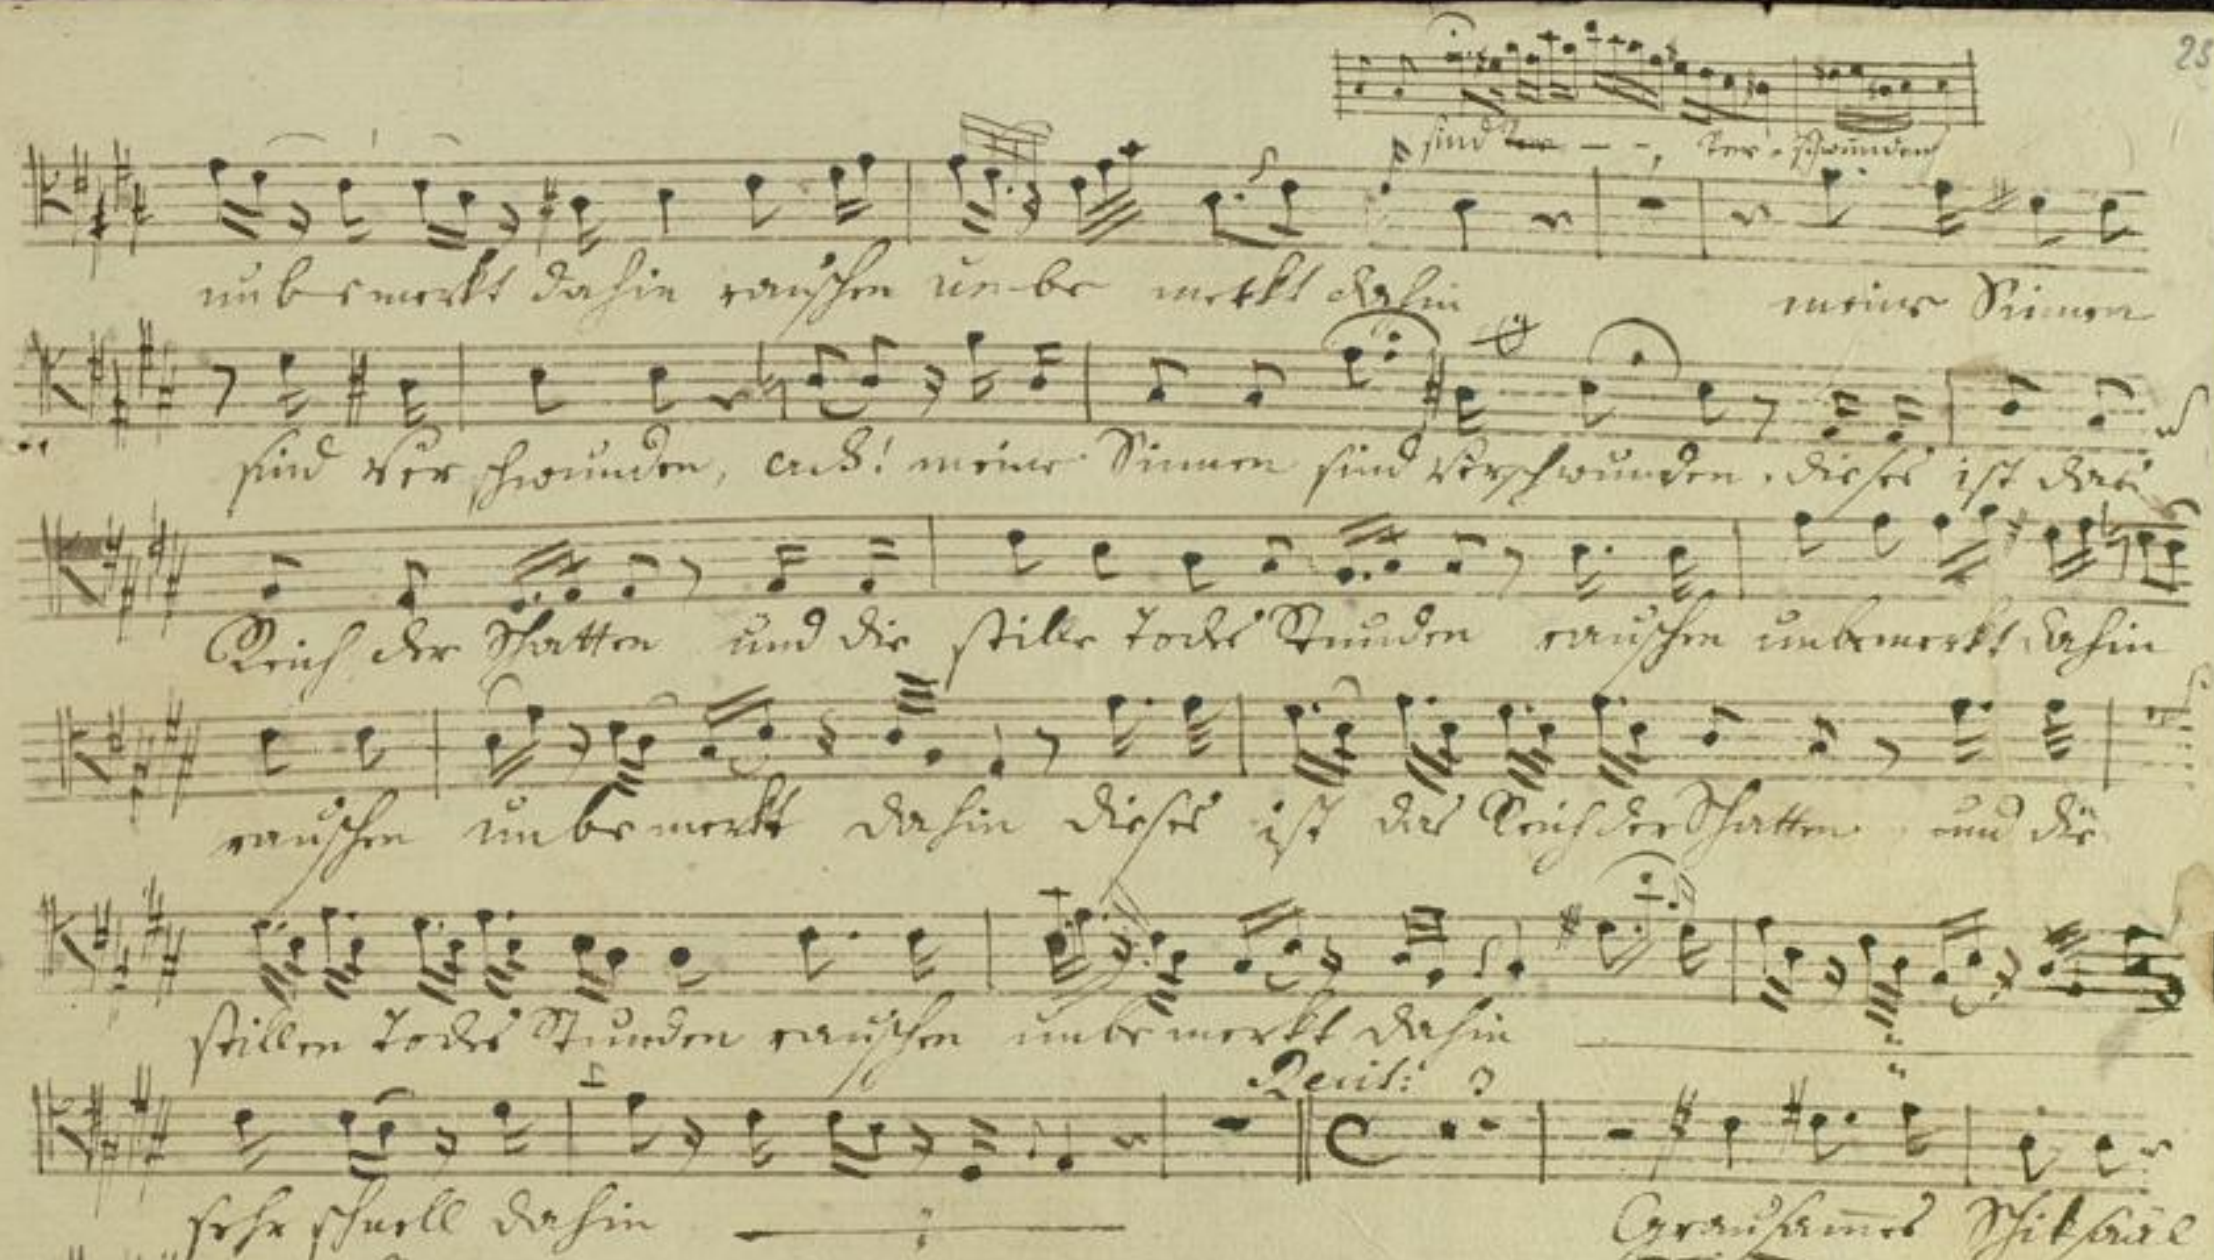 23
sind ver - - , ver - schwunden
unbemerkt dahin rauschen unbe merkt dahin meine Sinnen
sind ver schwunden, ach! meine Sinnen sind verschwunden. dieses ist das
Reich der Schatten und die stille Todes Stunden rauschen unbemerkt dahin
rauschen unbemerkt dahin dieses ist das Reich der Schatten und die
stillen Todes Stunden rauschen unbemerkt dahin
Recit:
sehr schnell dahin Grausames Schiksaal